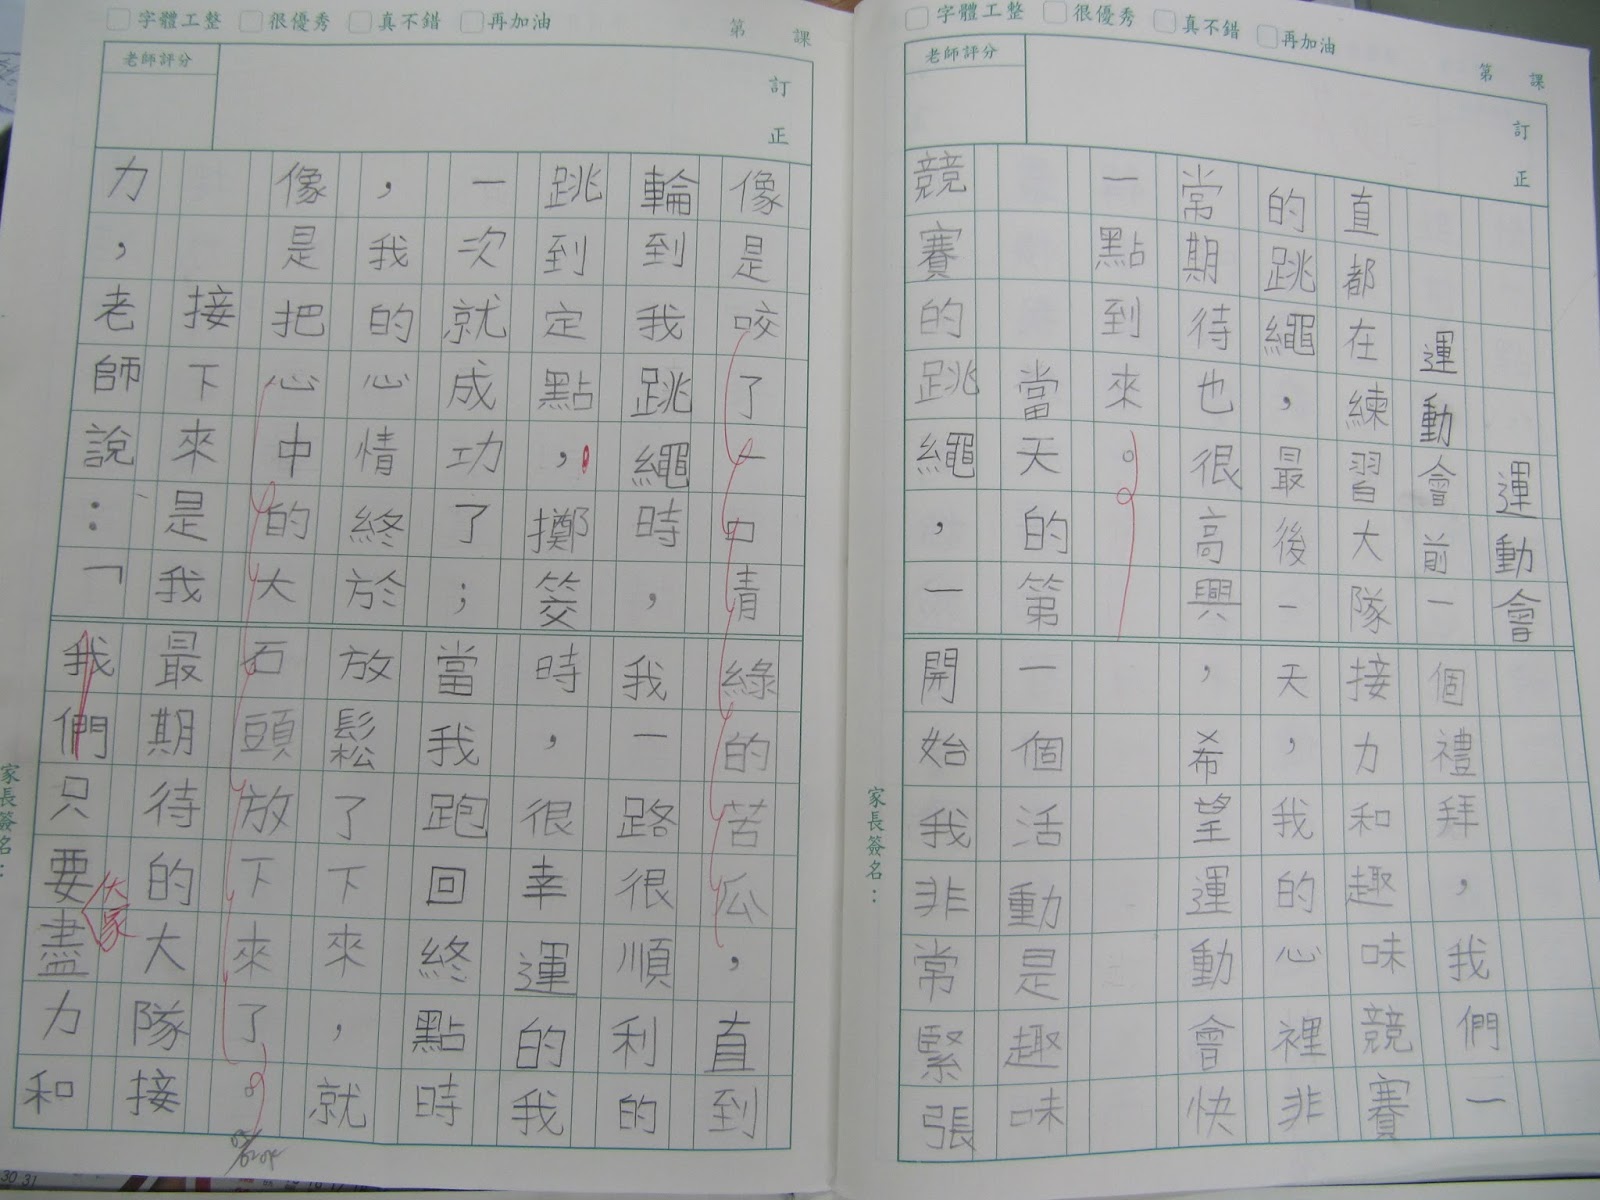 字體工整 很優秀 真不錯 再加油
第 課
老師評分
訂正
運動會
運動會前一個禮拜，我們一
直都在練習大隊接力和趣味競賽
的跳繩，最後一天，我的心裡非
常期待也很高興，希望運動會快
一點到來。
當天的第一個活動是趣味
競賽的跳繩，一開始我非常緊張
家長簽名：
字體工整 很優秀 真不錯 再加油
第 課
老師評分
訂正
像是咬了一口青綠的苦瓜，直到
輪到我跳繩時，我一路很順利的
跳到定點，擲筊時，很幸運的我
一次就成功了；當我跑回終點時
，我的心情終於放鬆了下來，就
像是把心中的大石頭放下來了。
接下來是我最期待的大隊接
力，老師說：「我們只要盡力和
大家
家長簽名：
30 31